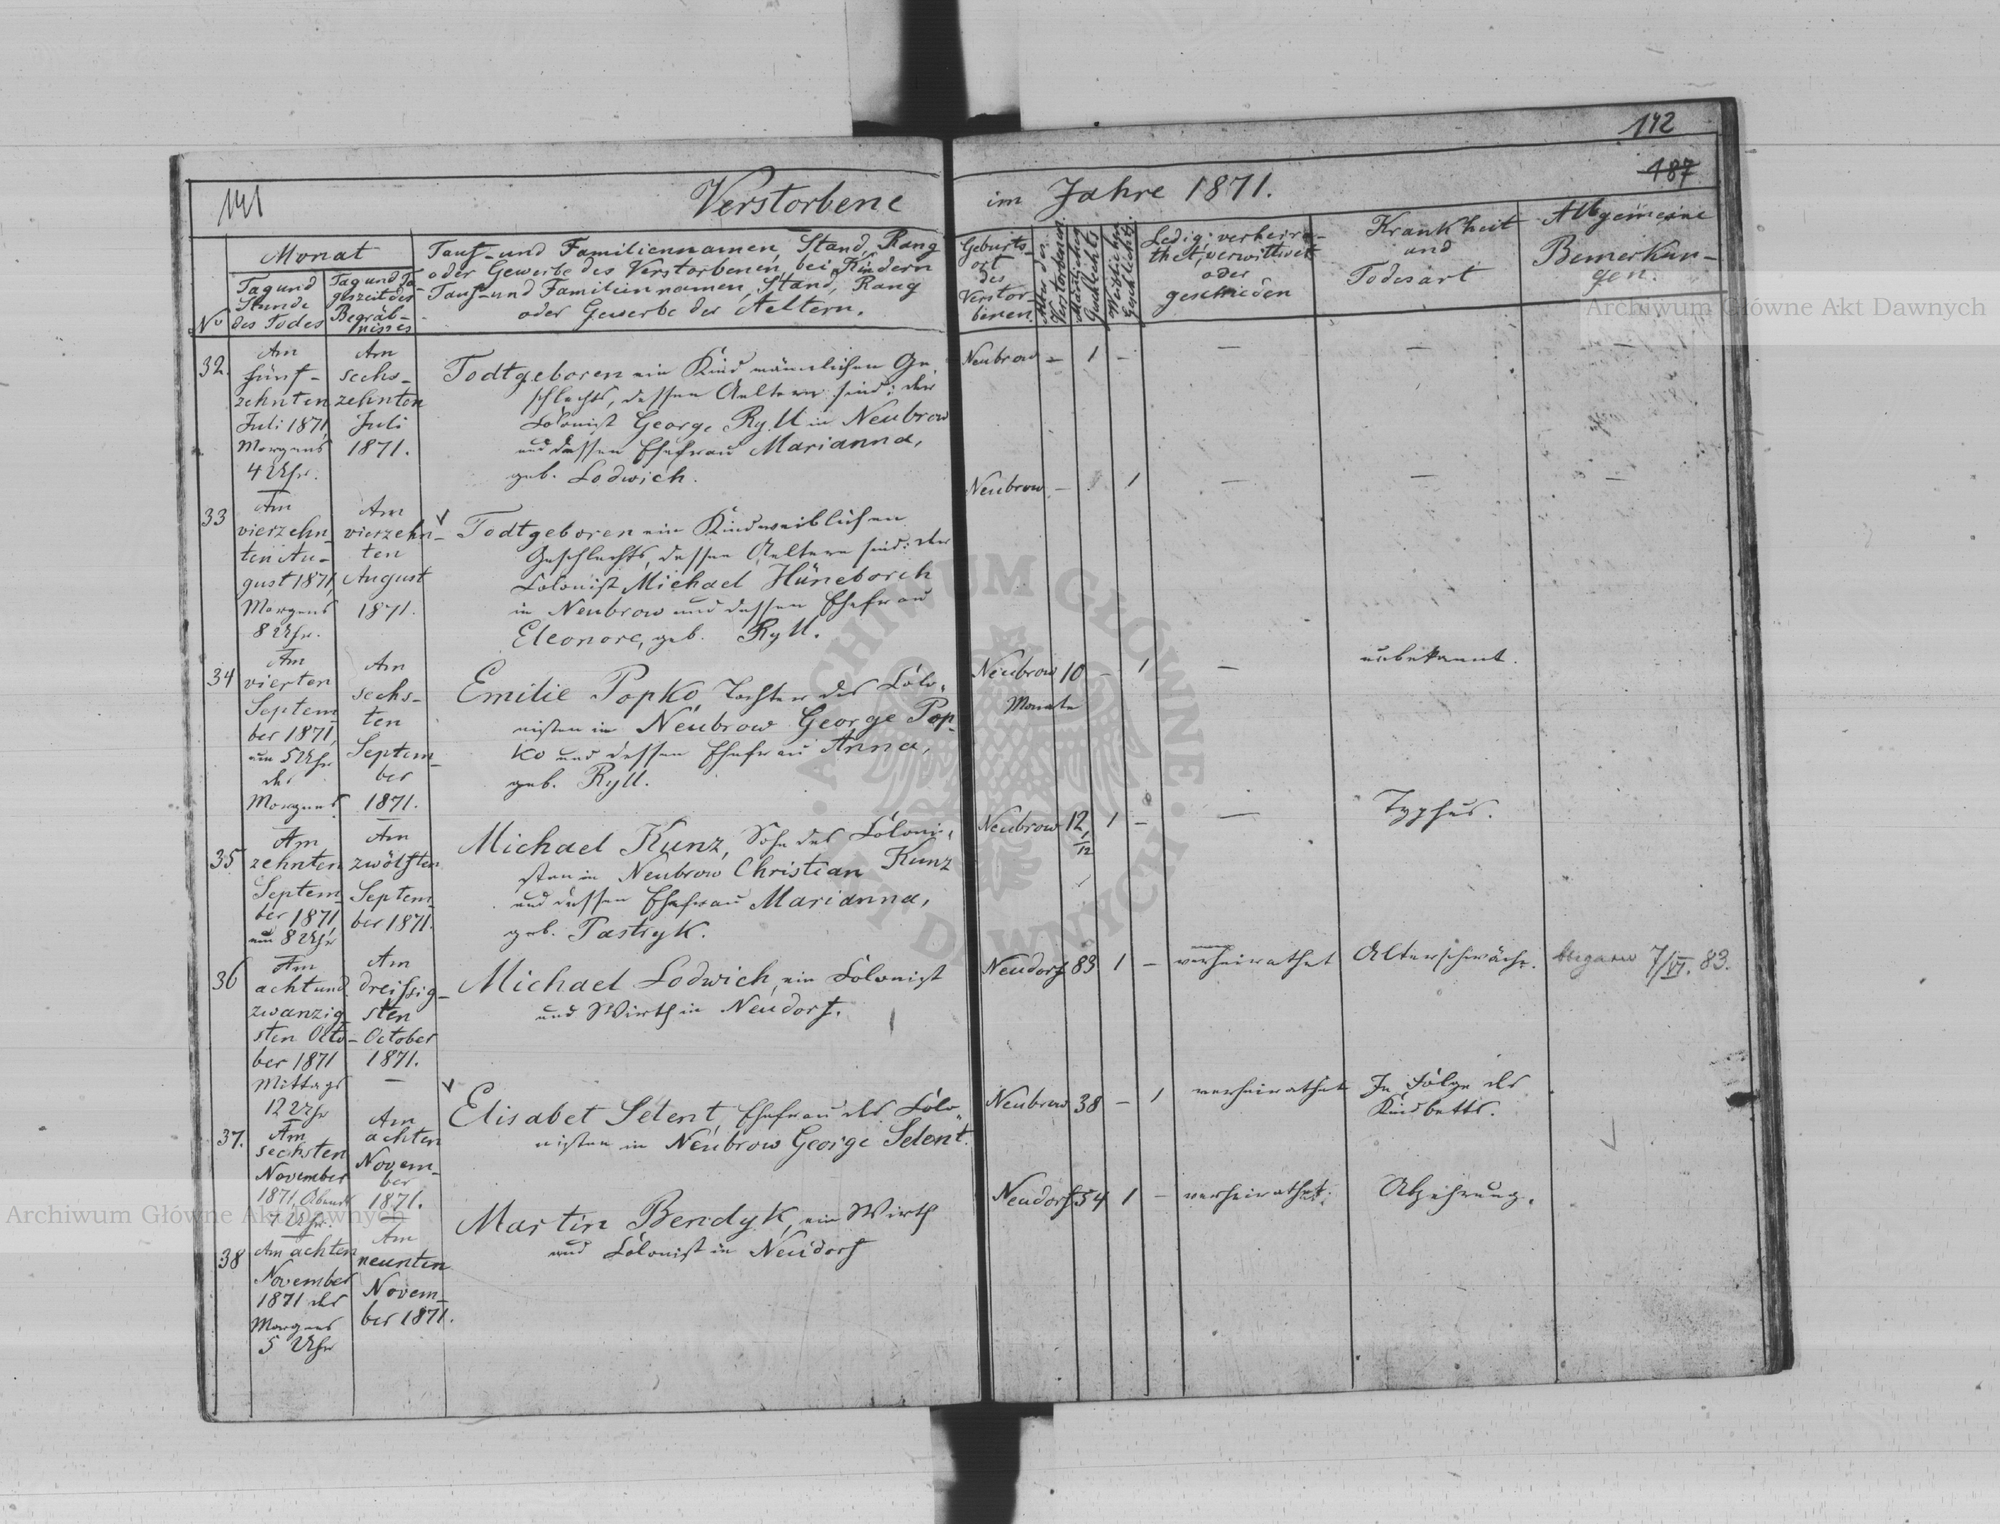 141
142
487
Verstorbene
im Jahre 1871.
No
Monat
Tag und
Stunde
des Todes
Tag und Ta-
geszeit des
Begräb-
nisses
Tauf- und Familiennamen, Stand, Rang
oder Gewerbe des Verstorbenen, bei Kindern
Tauf- und Familiennamen, Stand, Rang
oder Gewerbe der Aeltern.
Geburts-
ort
des
Verstor-
benen.
Alter der
Verstorbenen
Männlichen
Geschlechts
Weiblichen
Geschlechts.
Ledig, verheira-
thet, verwittwet
oder
geschieden
Krankheit
und
Todesart
Allgemeine
Bemerkun-
gen.
32.
Am
fünf-
zehnten
Juli 1871,
Morgens
4 Uhr.
Am
sechs-
zehnten
Juli
1871.
Todtgeboren ein Kind männlichen Ge-
schlechts, dessen Aeltern sind: der
Colonist George Ryll in Neubrow
und dessen Ehefrau Marianna,
geb. Lodwich.
Neubrow - 1 - - - -
33
Am
vierzehn-
ten Au-
gust 1871,
Morgens
8 Uhr.
Am
vierzehn-
ten
August
1871.
Todtgeboren ein Kind weiblichen
Geschlechts, dessen Aeltern sind: der
Colonist Michael Hüneborch
in Neubrow und dessen Ehefrau
Eleonore, geb. Ryll.
Neubrow - 1 - - -
34
Am
vierten
Septem-
ber 1871,
um 5 Uhr
des
Morgens.
Am
sechs-
ten
Septem-
ber
1871.
Emilie Popko, Tochter des Colo-
nisten in Neubrow George Pop-
ko und dessen Ehefrau Anna,
geb. Ryll.
Neubrow 10 - 1 - unbekannt.
Monate
35
Am
zehnten
Septem-
ber 1871,
um 8 Uhr
Am
zwölften
Septem-
ber 1871.
Michael Kunz, Sohn des Coloni-
sten in Neubrow Christian Kunz
und dessen Ehefrau Marianna,
geb. Pastryk.
Neubrow 12 1/12 1 - - Typhus.
36
Am
acht und
zwanzig-
sten Octo-
ber 1871
Mittags
12 Uhr
Am
dreissig-
sten
October
1871.
Michael Lodwich, ein Colonist
und Wirth in Neudorf.
Neudorf 83 1 - verheirathet Alterschwäche. 7/VI. 83.
37.
Am
sechsten
November
1871, Abends
7 Uhr.
Am
achten
Novem-
ber
1871.
Elisabet Selent, Ehefrau des Colo-
nisten in Neubrow George Selent.
Neubrow 38 - 1 verheirathet In Folge des
Kindbetts.
38
Am achten
November
1871 des
Morgens
5 Uhr
Am
neunten
Novem-
ber 1871.
Martin Bendyk, ein Wirth
und Colonist in Neudorf
Neudorf 54 1 - verheirathet. Abzehrung.
Archiwum Główne Akt Dawnych
Archiwum Główne Akt Dawnych
ARCHIWUM GŁÓWNE
AKT DAWNYCH